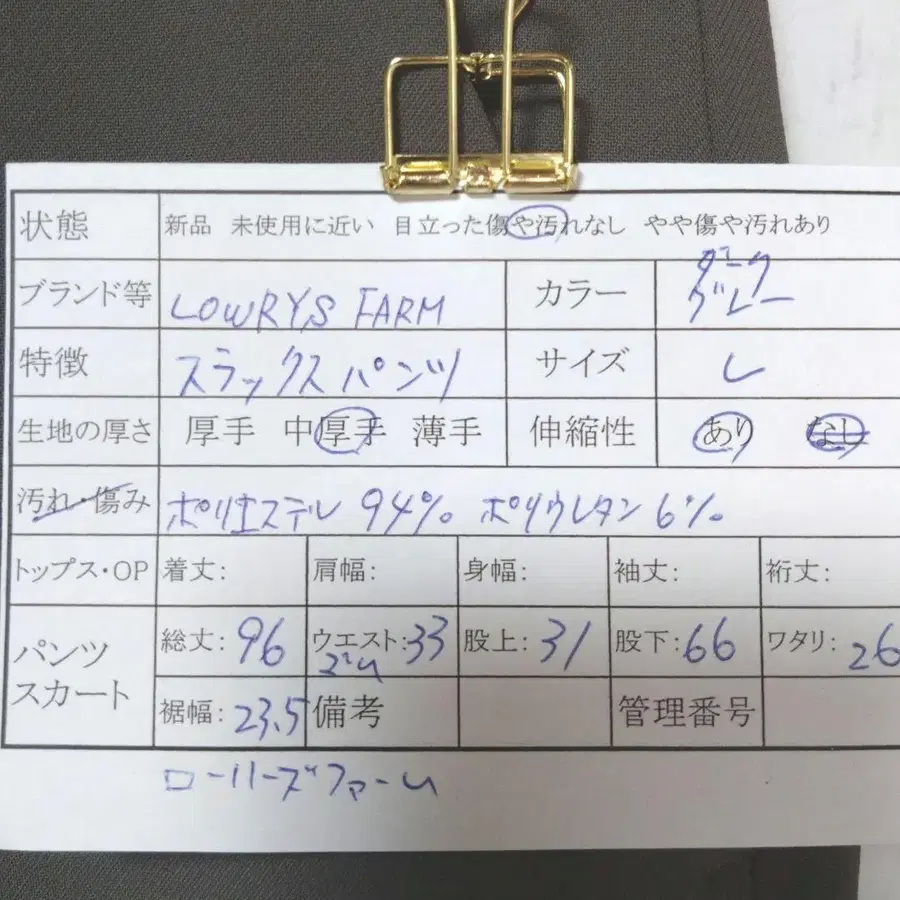 状態 新品 未使用に近い 目立った傷や汚れなし やや傷や汚れあり
ブランド等 LOWRYS FARM カラー ダーク グレー
特徴 スラックス パンツ サイズ L
生地の厚さ 厚手 中厚手 薄手 伸縮性 あり なし
汚れ・傷み ポリエステル 94% ポリウレタン 6%
トップス・OP 着丈: 肩幅: 身幅: 袖丈: 裄丈:
パンツ スカート 総丈: 96 ウエスト: 33 ゴム 股上: 31 股下: 66 ワタリ: 26
裾幅: 23.5 備考 管理番号
ローリーズファーム